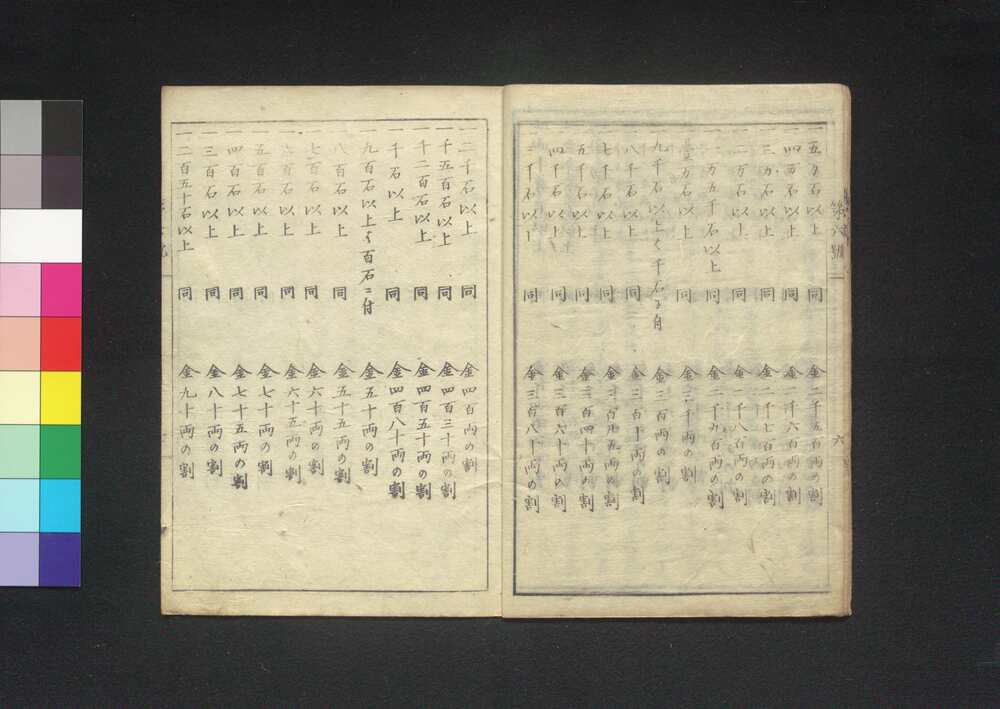 第六號
六
一五万石以上 同 金二千五百両の割
一四万石以上 同 金二千六百両の割
一三万石以上 同 金二千七百両の割
一二万石以上 同 金二千八百両の割
一一万五千石以上 同 金二千九百両の割
一壱万石以上 同 金三千両の割
一九千石以上ハ千石ニ付 金三百両の割
一八千石以上 同 金三百十両の割
一七千石以上 同 金三百廿五両の割
一五千石以上 同 金三百四十両の割
一四千石以上 同 金三百六十両の割
一三千石以上 同 金三百八十両の割
一二千石以上 同 金四百両の割
一千五百石以上 同 金四百三十両の割
一千二百石以上 同 金四百五十両の割
一千石以上 同 金四百八十両の割
一九百石以上ハ百石ニ付 金五十両の割
一八百石以上 同 金五十五両の割
一七百石以上 同 金六十両の割
一六百石以上 同 金六十五両の割
一五百石以上 同 金七十両の割
一四百石以上 同 金七十五両の割
一三百石以上 同 金八十両の割
一二百五十石以上 同 金九十両の割